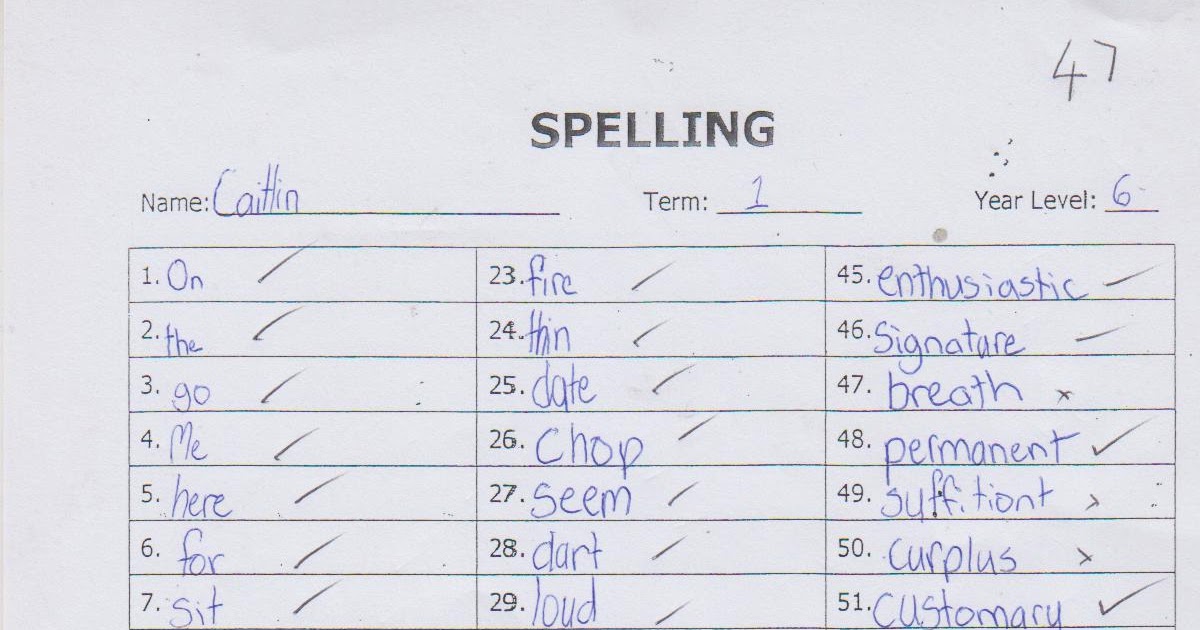 47
SPELLING
Name: Caitlin Term: 1 Year Level: 6
1. On 23. fire 45. enthusiastic
2. the 24. thin 46. Signature
3. go 25. date 47. breath
4. Me 26. Chop 48. permanent
5. here 27. seem 49. suffitiont
6. for 28. dart 50. curplus
7. sit 29. loud 51. customary